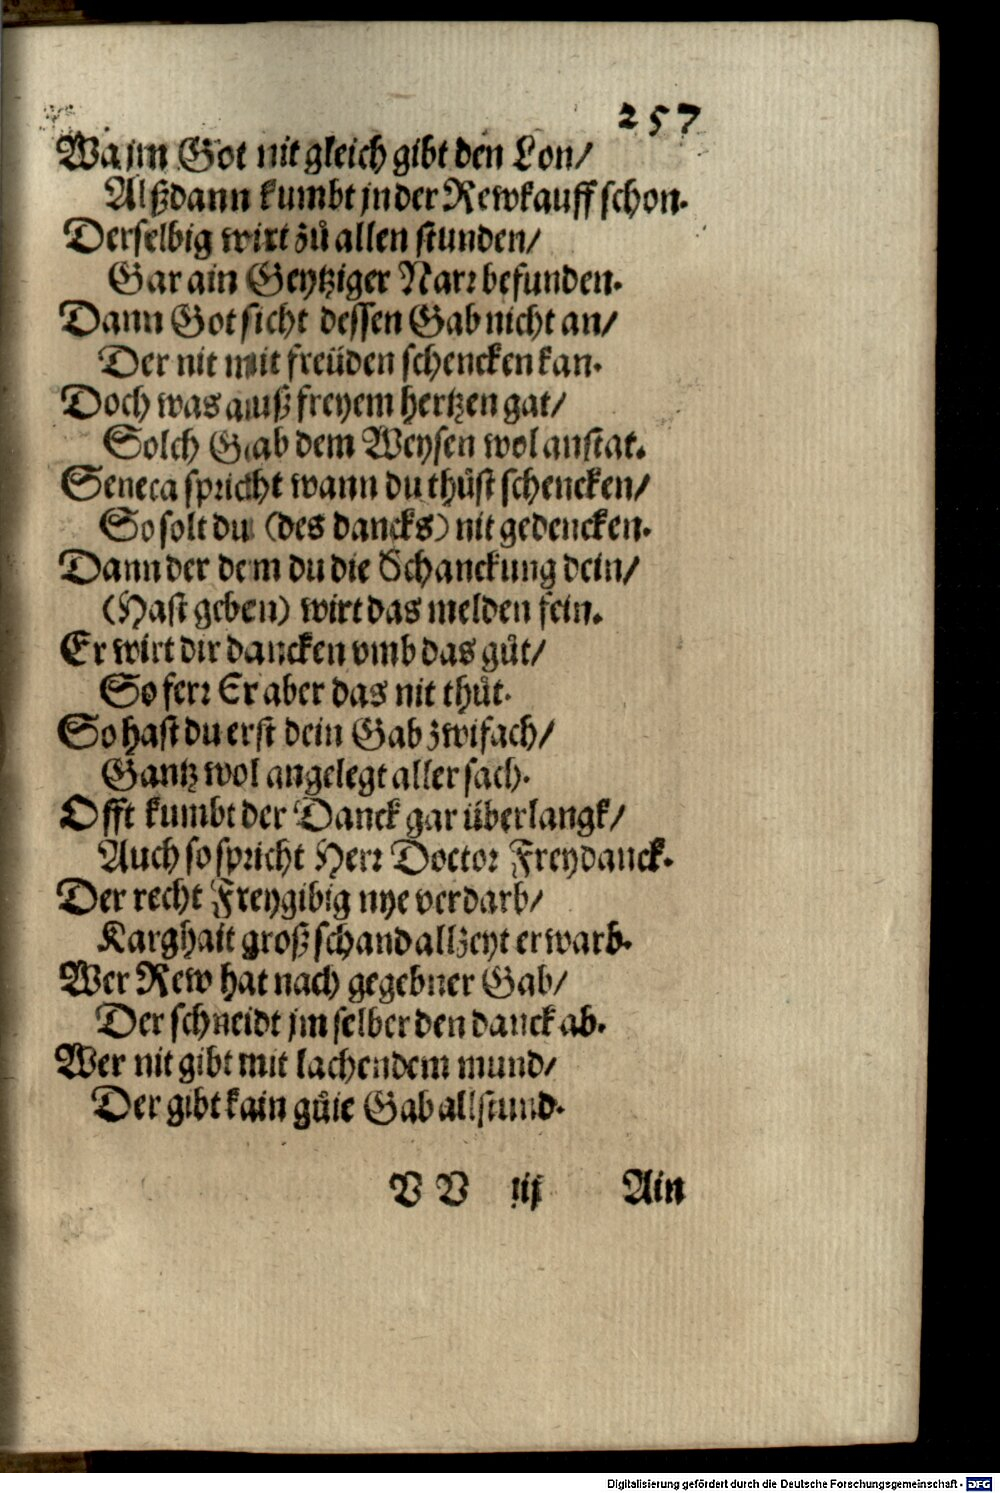 257
Wa jm Got nit gleich gibt den Lon/
Alßdann kumbt jn der Rewkauff schon.
Derselbig wirt zů allen stunden/
Gar ain Geytziger Narr befunden.
Dann Got sicht dessen Gab nicht an/
Der nit mit freüden schencken kan.
Doch was auß freyem hertzen gat/
Solch Gab dem Weysen wol anstat.
Seneca spricht wann du thůst schencken/
So solt du (des dancks) nit gedencken.
Dann der dem du die Schanckung dein/
(Hast geben) wirt das melden fein.
Er wirt dir dancken vmb das gůt/
So ferr Er aber das nit thůt.
So hast du erst dein Gab zwifach/
Gantz wol angelegt aller sach.
Offt kumbt der Danck gar überlangk/
Auch so spricht Herr Doctor Freydanck.
Der recht Freygibig nye verdarb/
Karghait groß schand allzeyt erwarb.
Wer Rew hat nach gegebner Gab/
Der schneidt jm selber den danck ab.
Wer nit gibt mit lachendem mund/
Der gibt kain gůte Gab allstund.
V V iij Ain
Digitalisierung gefördert durch die Deutsche Forschungsgemeinschaft - DFG